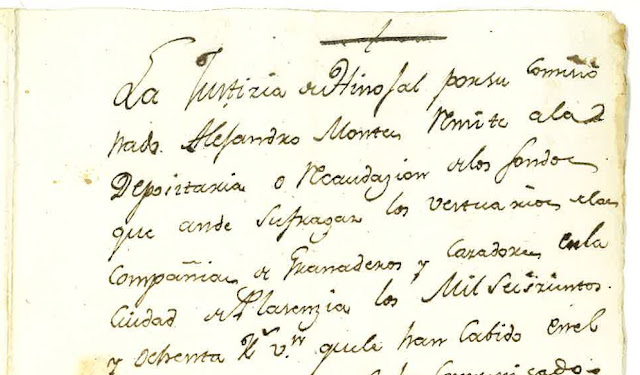 La Justizia de Hinojal por su comisio
nado Alejandro Montes Remite a la
Depoitaria o Recaudazion de los fondos
que ande Sufragar los vestuarios de las
Compañias de Granaderos y Cazadores en la
Ciudad de Plasenzia los Mil Seiszientos
y Ochenta Rs vn que le han Cabido en el
comunicado